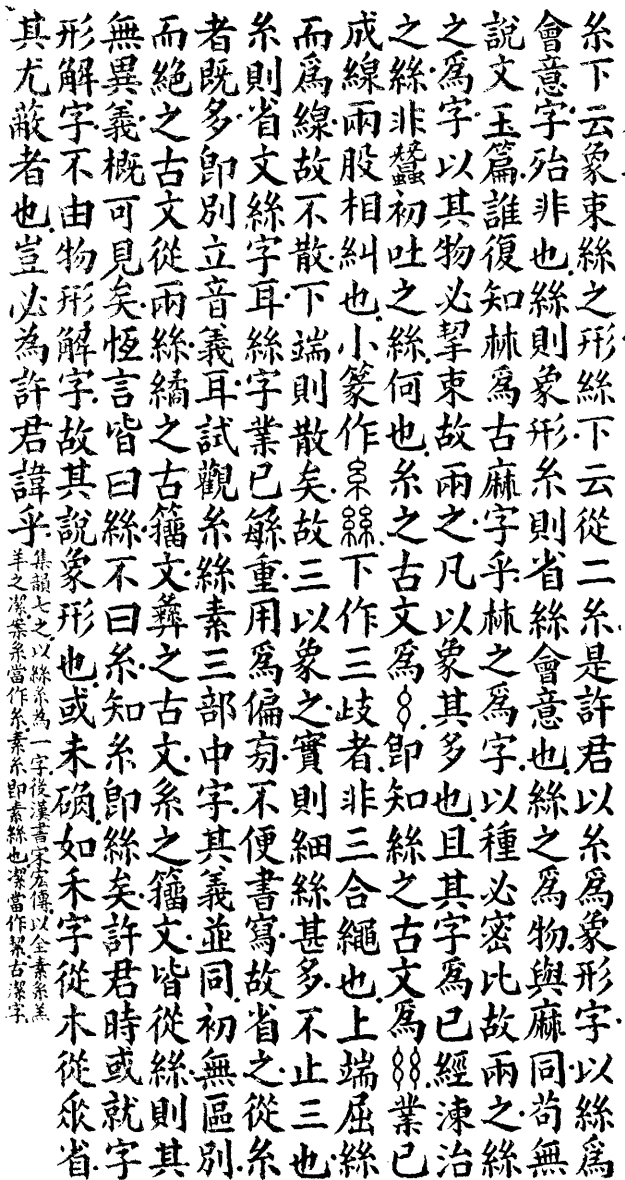 糸下云象束絲之形絲下云從二糸是許君以糸爲象形字以絲爲
會意字殆非也絲則象形糸則省絲會意也絲之爲物與麻同苟無
說文玉篇誰復知𣏟爲古麻字乎𣏟之爲字以種必密比故兩之絲
之爲字以其物必挈束故兩之凡以象其多也且其字爲已經湅治
之絲非蠶初吐之絲何也糸之古文爲𢆯即知絲之古文爲𢇁業已
成線兩股相糾也小篆作糸絲下作三歧者非三合繩也上端屈絲
而爲線故不散下端則散矣故三以象之實則細絲甚多不止三也
糸則省文絲字耳絲字業已緐重用爲偏旁不便書寫故省之從糸
者旣多卽別立音義耳試觀糸絲素三部中字其義並同初無區別
而絕之古文從兩絲繘之古籒文彝之古文糸之籒文皆從絲則其
無異義槪可見矣恆言皆曰絲不曰糸知糸卽絲矣許君時或就字
形解字不由物形解字故其說象形也或未确如禾字從木從𠂹省
其尤蔽者也豈必為許君諱乎集韻七之以絲糸為一字後漢書宋宏傳以全素糸羔
羊之潔案糸當作糸素糸即素絲也潔當作絜古潔字